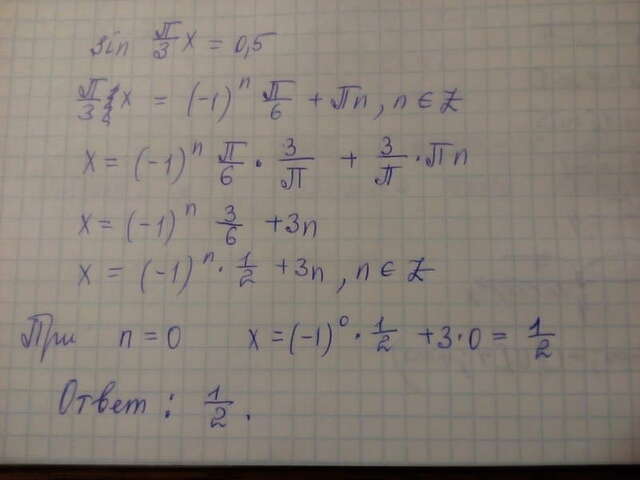 sin π/3 x = 0,5
π/3 x = (-1)ⁿ π/6 + πn, n ∈ Z
x = (-1)ⁿ π/6 · 3/π + 3/π · πn
x = (-1)ⁿ 3/6 + 3n
x = (-1)ⁿ · 1/2 + 3n, n ∈ Z
При n = 0 x = (-1)⁰ · 1/2 + 3·0 = 1/2
Ответ: 1/2.